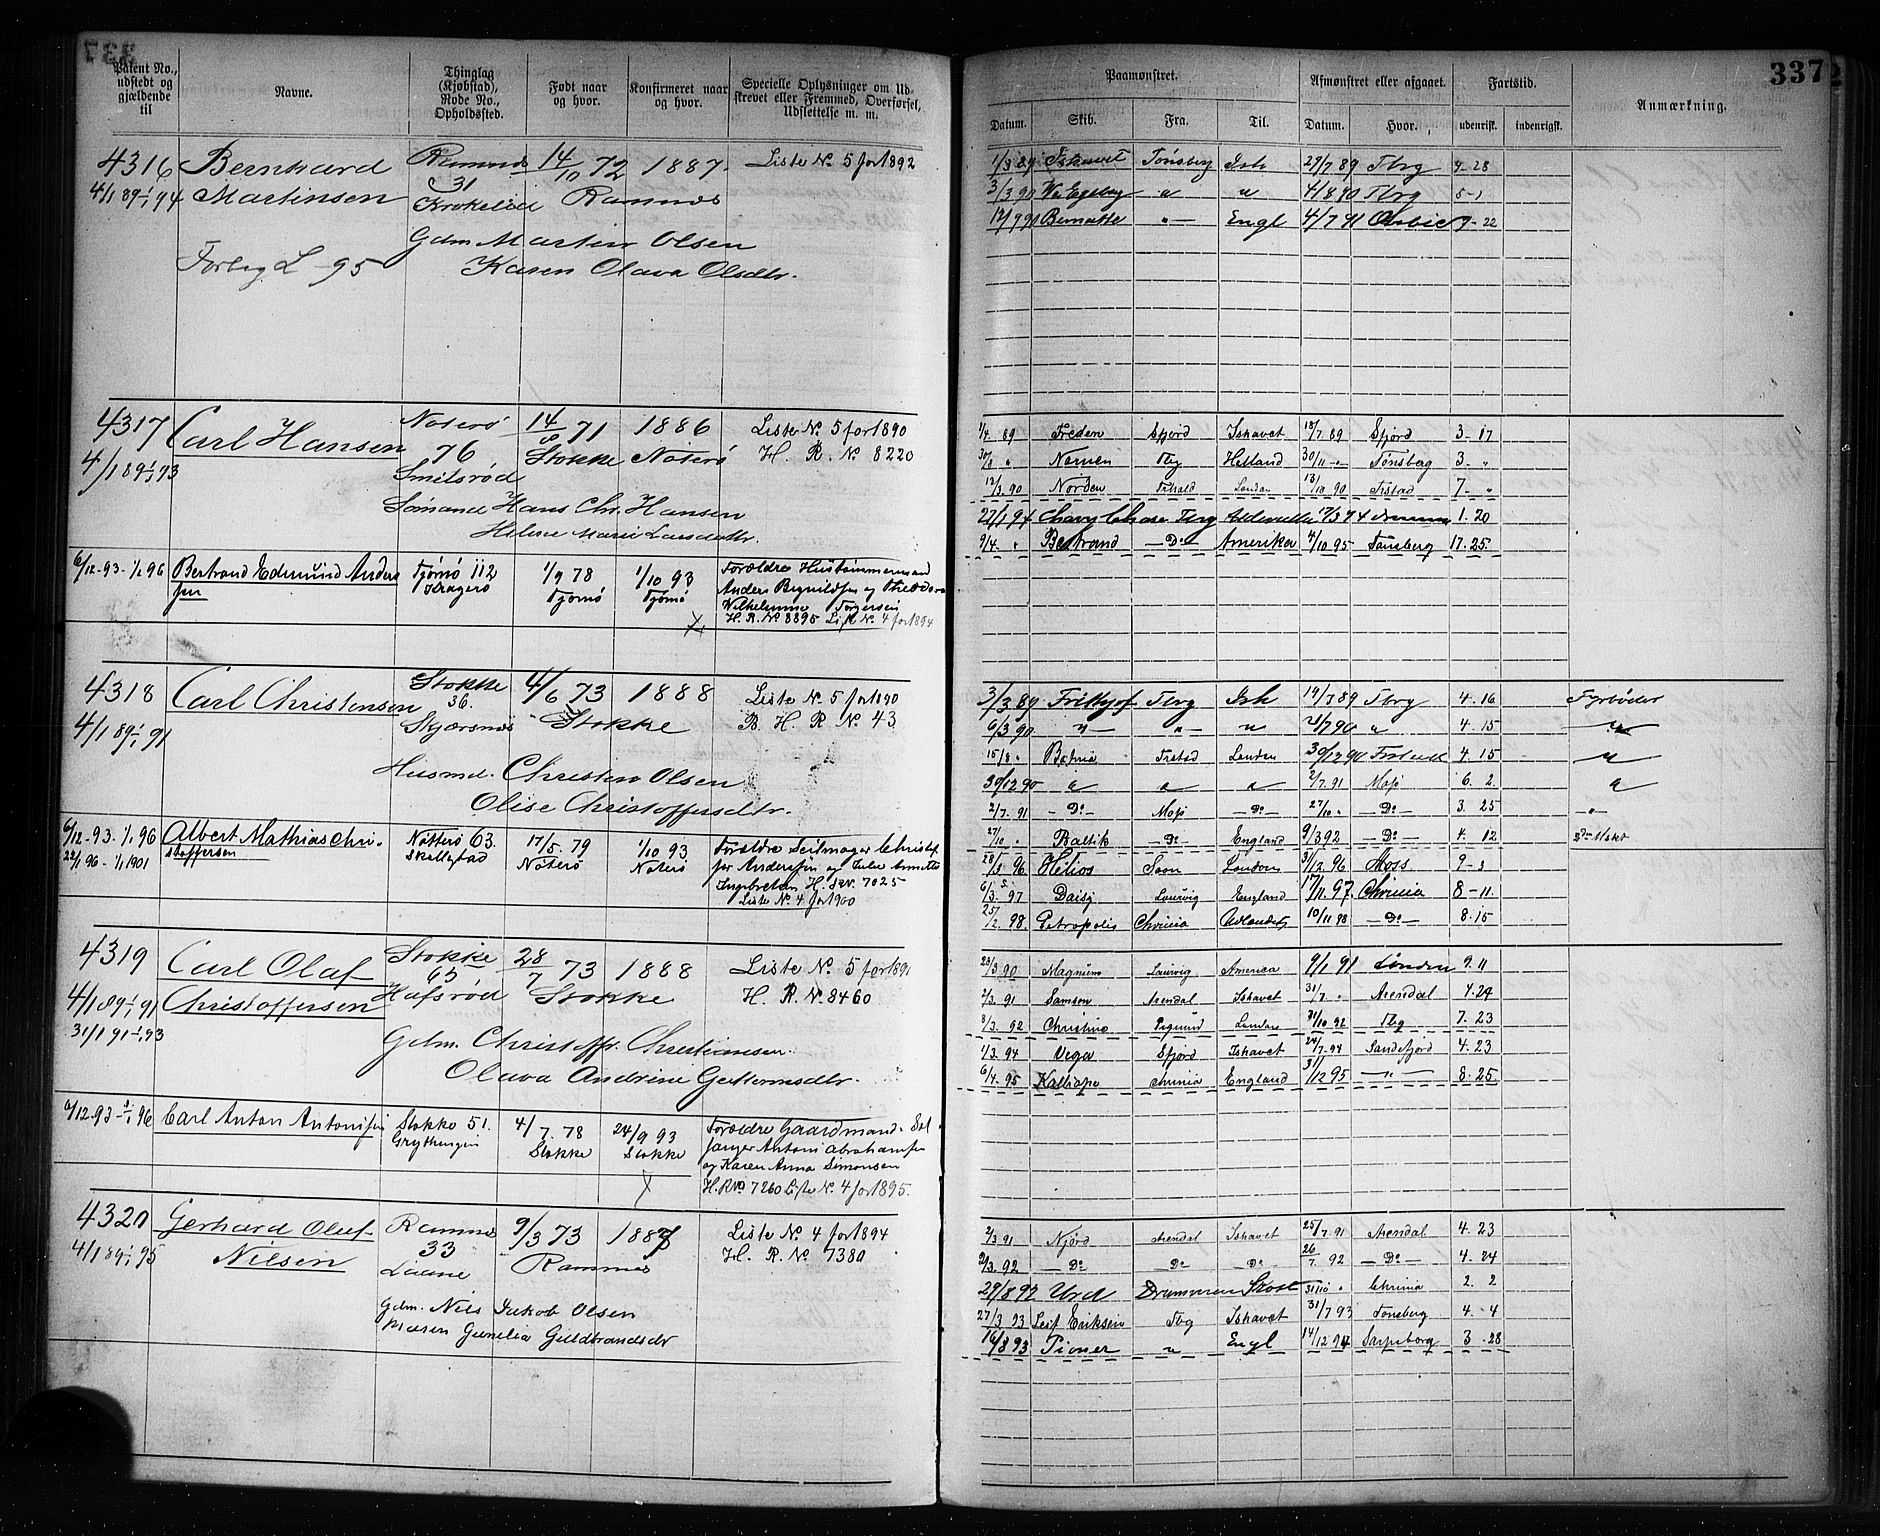 337
Patent No., udstedt og gjældende til
Navne.
Thinglag (Kjøbstad), Rode No., Opholdssted.
Født naar og hvor.
Konfirmeret naar og hvor.
Specielle Oplysninger om Udskrevet eller Fremmed, Overførsel, Udslettelse m. m.
4316 Bernhard Ramnes 14/10 72 1887. Liste No. 5 for 1892
4/1 89-1/1 94 Martinsen 31 Ramnes
Gdm Martin Olsen
L -95 Karen Olava Olsdtr.
4317 Carl Hansen Noterø 14/8 71 1886 Liste No. 5 for 1890
4/1 89 1/1 93 76 Stokke Noterø H. R. No 8220
Smitsrød
Sømand Hans Chr. Hansen
Helene Marie Larsdattr.
6/12-93-1/1 96 Bertrand Edmund Andersen Tjømø 112 1/9 78 1/10 93 Forældre Hustømmermand
Kragerø Tjømø Tjømø Anders Bognildsen og Theodora
Wilhelmine Torgersen
H. R. No 8895 List No. 4 for 1894
4318 Carl Christensen Stokke 4/6 73 1888 Liste No. 5 for 1890
36. B. H. R No 43
4/1 89 1/1 91 Skjærsnes Stokke
Husmd. Christen Olsen
Olise Christoffersdtr.
6/12-93-1/1 96 Albert Mathias Chri- Nøtterø 63. 17/5. 79 1/10 93 Forældre Seilmager Christof
22/1 96-1/1 1901 stoffersen Skallestad Nøterø Nøterø fer Andersen og Julie Annette
Ingebretsen H. R No. 7025
Liste No. 4 for 1900
4319 Carl Olaf Stokke 28/7 73 1888 Liste No. 5 for 1891
65
4/1 89-1/1 91 Christoffersen Hafsrød Stokke H. R No. 8460
31/1 91-1/1 93
Gdm. Christoffr. Christiansen.
Olava Andrine Guttormsdtr.
6/12-93-1/1 96 Carl Anton Antonsen Stokke 51. 4/7. 78 24/9 93 Forældre Gaardmand- Sel
Grythengen Stokke Stokke fanger Anton Abrahamsen
og Karen Anna Simonsen
H.R No 7260 Liste No. 4 for 1895.
4320 Gerhard Oluf Ramnes 9/3 73 1887 Liste No. 4 for 1894
4/1 89 1/1 95 Nilsen 33 Ramnes H. R. No. 7380
Gdm. Nils Jakob Olsen
Maren Gunelia Guldbrandsdtr
Paamønstret.
Afmønstret eller afgaaet.
Fartstid.
Anmærkning.
337
Datum. Skib. Fra. Til. Datum. Hvor. udenrigsk. indenrigsk.
1/3 89 Ishavet Tønsberg Ish 29/7 89 Tbrg 4-28
3/3 90 " " 4/8 90 Tbrg 5-1
12/9 90 " Engl 4/7 91 9-22
1/4 89 Freden Sfjord Ishavet 18/7 89 Sfjord 3-17
30/8 " Tbg Holland 30/11 - Tønsberg 3- "
12/3. 90 Norden Fshald London 13/10 90 Frstad 7- "
27/1 94 Chevy Chase Tbrg 17/3 94 1. 20
9/4. " Bertrand - Do - Amerika 4/10 95 Tønsberg 17-25.
3/3 89 Frithjof Tbrg Ish 19/7 89 Tbrg 4. 16 Fyrbøder
6/3 90 " " " 2/7 90 " 4. 15 "
15/8 " Frstad London 30/12 90 4. 15 "
30/12 90 " " " 2/7. 91 Moss 6. 2 "
2/7. 91 - Do - Moss - Do - 27/10 " - Do - 3. 25 "
27/10 " Baltik Do England 9/3 92 - Do - 4. 12
28/3 96 Helios Soon London 31/12 96 Moss 9-3
6/3. 97 Daisy Laurvig England 17/11 97. Chrinia 8-11
25/2. 98. Petropolis Chrinia 10/11 98 - Do - 8. 15
23/3 90 Magnum Laurvig America 9/1 91 London 9. 11
2/3. 91 Samson Arendal Ishavet 31/7. " Arendal 4.29
8/3. 92 Christine London 31/10 92 Tbg 7. 23
1/3. 94 Vega Sfjord Ishavet 24/7-94 Sandefjord 4.23
6/4. 95 Kalliope Chrinia England 31/12 95 - " - 8-25
2/3 91 Njørd Arendal Ishavet 25/7 91 Arendal 4. 23
2/3. 92 - Do - Do - Do - 26/7. 92 - Do - 4. 24
28/8 92 Urd Drammen 31/10 " Chrinia 2. 2
27/3 93 Leif Eriksen Tbg Ishavet 31/7 93 Tønsberg 4. 4
16/8 93 Pioner " Engl 14/12 94 Sarpsborg 3. 28